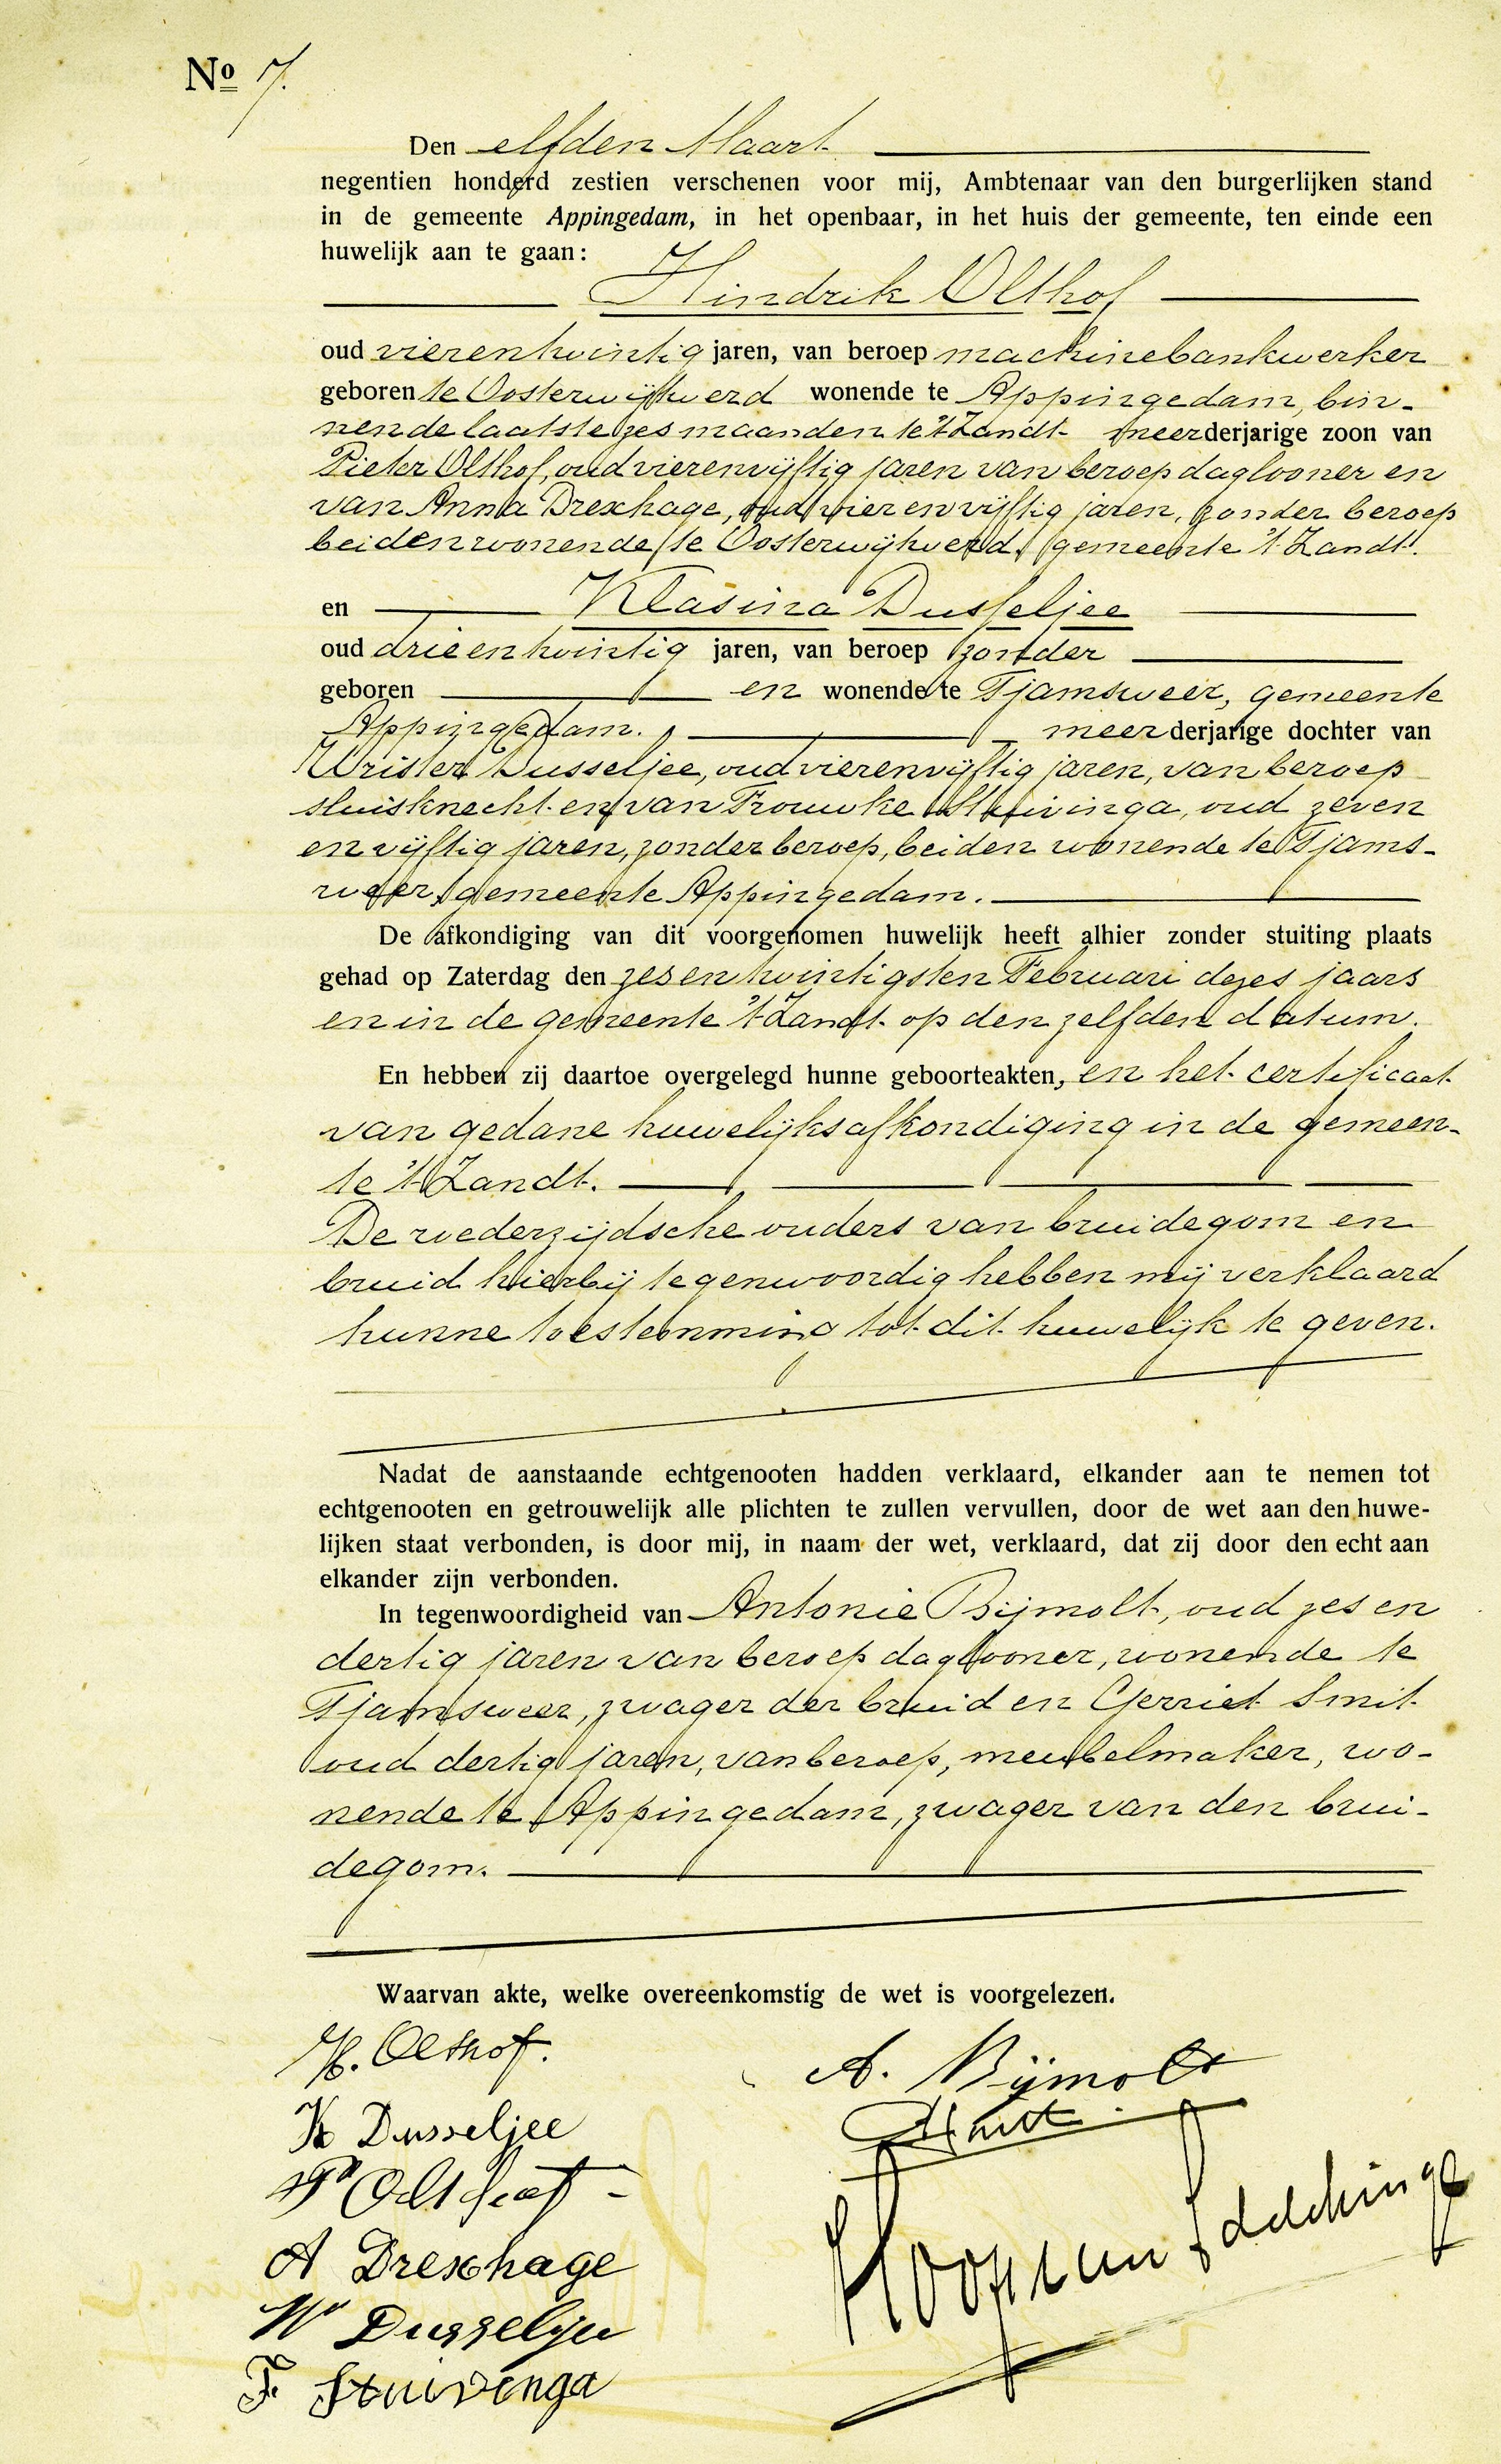 No 7.
Den elfden Maart
negentien honderd zestien verschenen voor mij, Ambtenaar van den burgerlijken stand
in de gemeente Appingedam, in het openbaar, in het huis der gemeente, ten einde een
huwelijk aan te gaan:
Hindrik Olthof
oud vierentwintig jaren, van beroep machinebankwerker
geboren te Oosterwijtwerd wonende te Appingedam, bin-
nen de laatste zes maanden te 't Zandt meerderjarige zoon van
Pieter Olthof, oud vierenvijftig jaren van beroep daglooner en
van Anna Drexhage, oud vier en vijftig jaren, zonder beroep
beiden wonende te Oosterwijtwerd, gemeente 't Zandt.
en Klasina Dusseljee
oud drieentwintig jaren, van beroep zonder
geboren en wonende te Tjamsweer, gemeente
Appingedam. meerderjarige dochter van
Wrister Dusseljee, oud vierenvijftig jaren, van beroep
sluisknecht en van Trouwke Stuivinga, oud zeven
en vijftig jaren, zonder beroep, beiden wonende te Tjams-
weer, gemeente Appingedam.
De afkondiging van dit voorgenomen huwelijk heeft alhier zonder stuiting plaats
gehad op Zaterdag den zesentwintigsten Februari dezes jaars
en in de gemeente 't Zandt op den zelfden datum.
En hebben zij daartoe overgelegd hunne geboorteakten, en het certificaat
van gedane huwelijksafkondiging in de gemeen-
te 't Zandt.
De wederzijdsche ouders van bruidegom en
bruid hierbij tegenwoordig hebben mij verklaard
hunne toestemming tot dit huwelijk te geven.
Nadat de aanstaande echtgenooten hadden verklaard, elkander aan te nemen tot
echtgenooten en getrouwelijk alle plichten te zullen vervullen, door de wet aan den huwe-
lijken staat verbonden, is door mij, in naam der wet, verklaard, dat zij door den echt aan
elkander zijn verbonden.
In tegenwoordigheid van Antonie Bijmolt, oud zes en
dertig jaren van beroep daglooner, wonende te
Tjamsweer, zwager der bruid en Gerriet Smit
oud dertig jaren, van beroep, meubelmaker, wo-
nende te Appingedam, zwager van den brui-
degom.
Waarvan akte, welke overeenkomstig de wet is voorgelezen.
H. Olthof.
A. Bijmolt
K Dusseljee
GSmit.
P Olthof
A Drexhage
W Dusseljee
F. Stuivenga